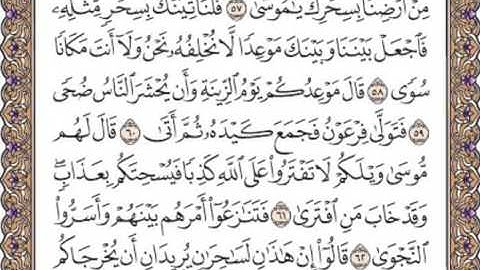 مِنْ أَرْضِنَا بِسِحْرِكَ يَٰمُوسَىٰ ٥٧ فَلَنَأْتِيَنَّكَ بِسِحْرٍ مِّثْلِهِۦ
فَٱجْعَلْ بَيْنَنَا وَبَيْنَكَ مَوْعِدًا لَّا نُخْلِفُهُۥ نَحْنُ وَلَآ أَنتَ مَكَانًا
سُوًى ٥٨ قَالَ مَوْعِدُكُمْ يَوْمُ ٱلزِّينَةِ وَأَن يُحْشَرَ ٱلنَّاسُ ضُحًى
٥٩ فَتَوَلَّىٰ فِرْعَوْنُ فَجَمَعَ كَيْدَهُۥ ثُمَّ أَتَىٰ ٦٠ قَالَ لَهُم
مُّوسَىٰ وَيْلَكُمْ لَا تَفْتَرُوا۟ عَلَى ٱللَّهِ كَذِبًا فَيُسْحِتَكُم بِعَذَابٍ ۖ
وَقَدْ خَابَ مَنِ ٱفْتَرَىٰ ٦١ فَتَنَٰزَعُوٓا۟ أَمْرَهُم بَيْنَهُمْ وَأَسَرُّوا۟
ٱلنَّجْوَىٰ ٦٢ قَالُوٓا۟ إِنْ هَٰذَٰنِ لَسَٰحِرَٰنِ يُرِيدَانِ أَن يُخْرِجَاكُم